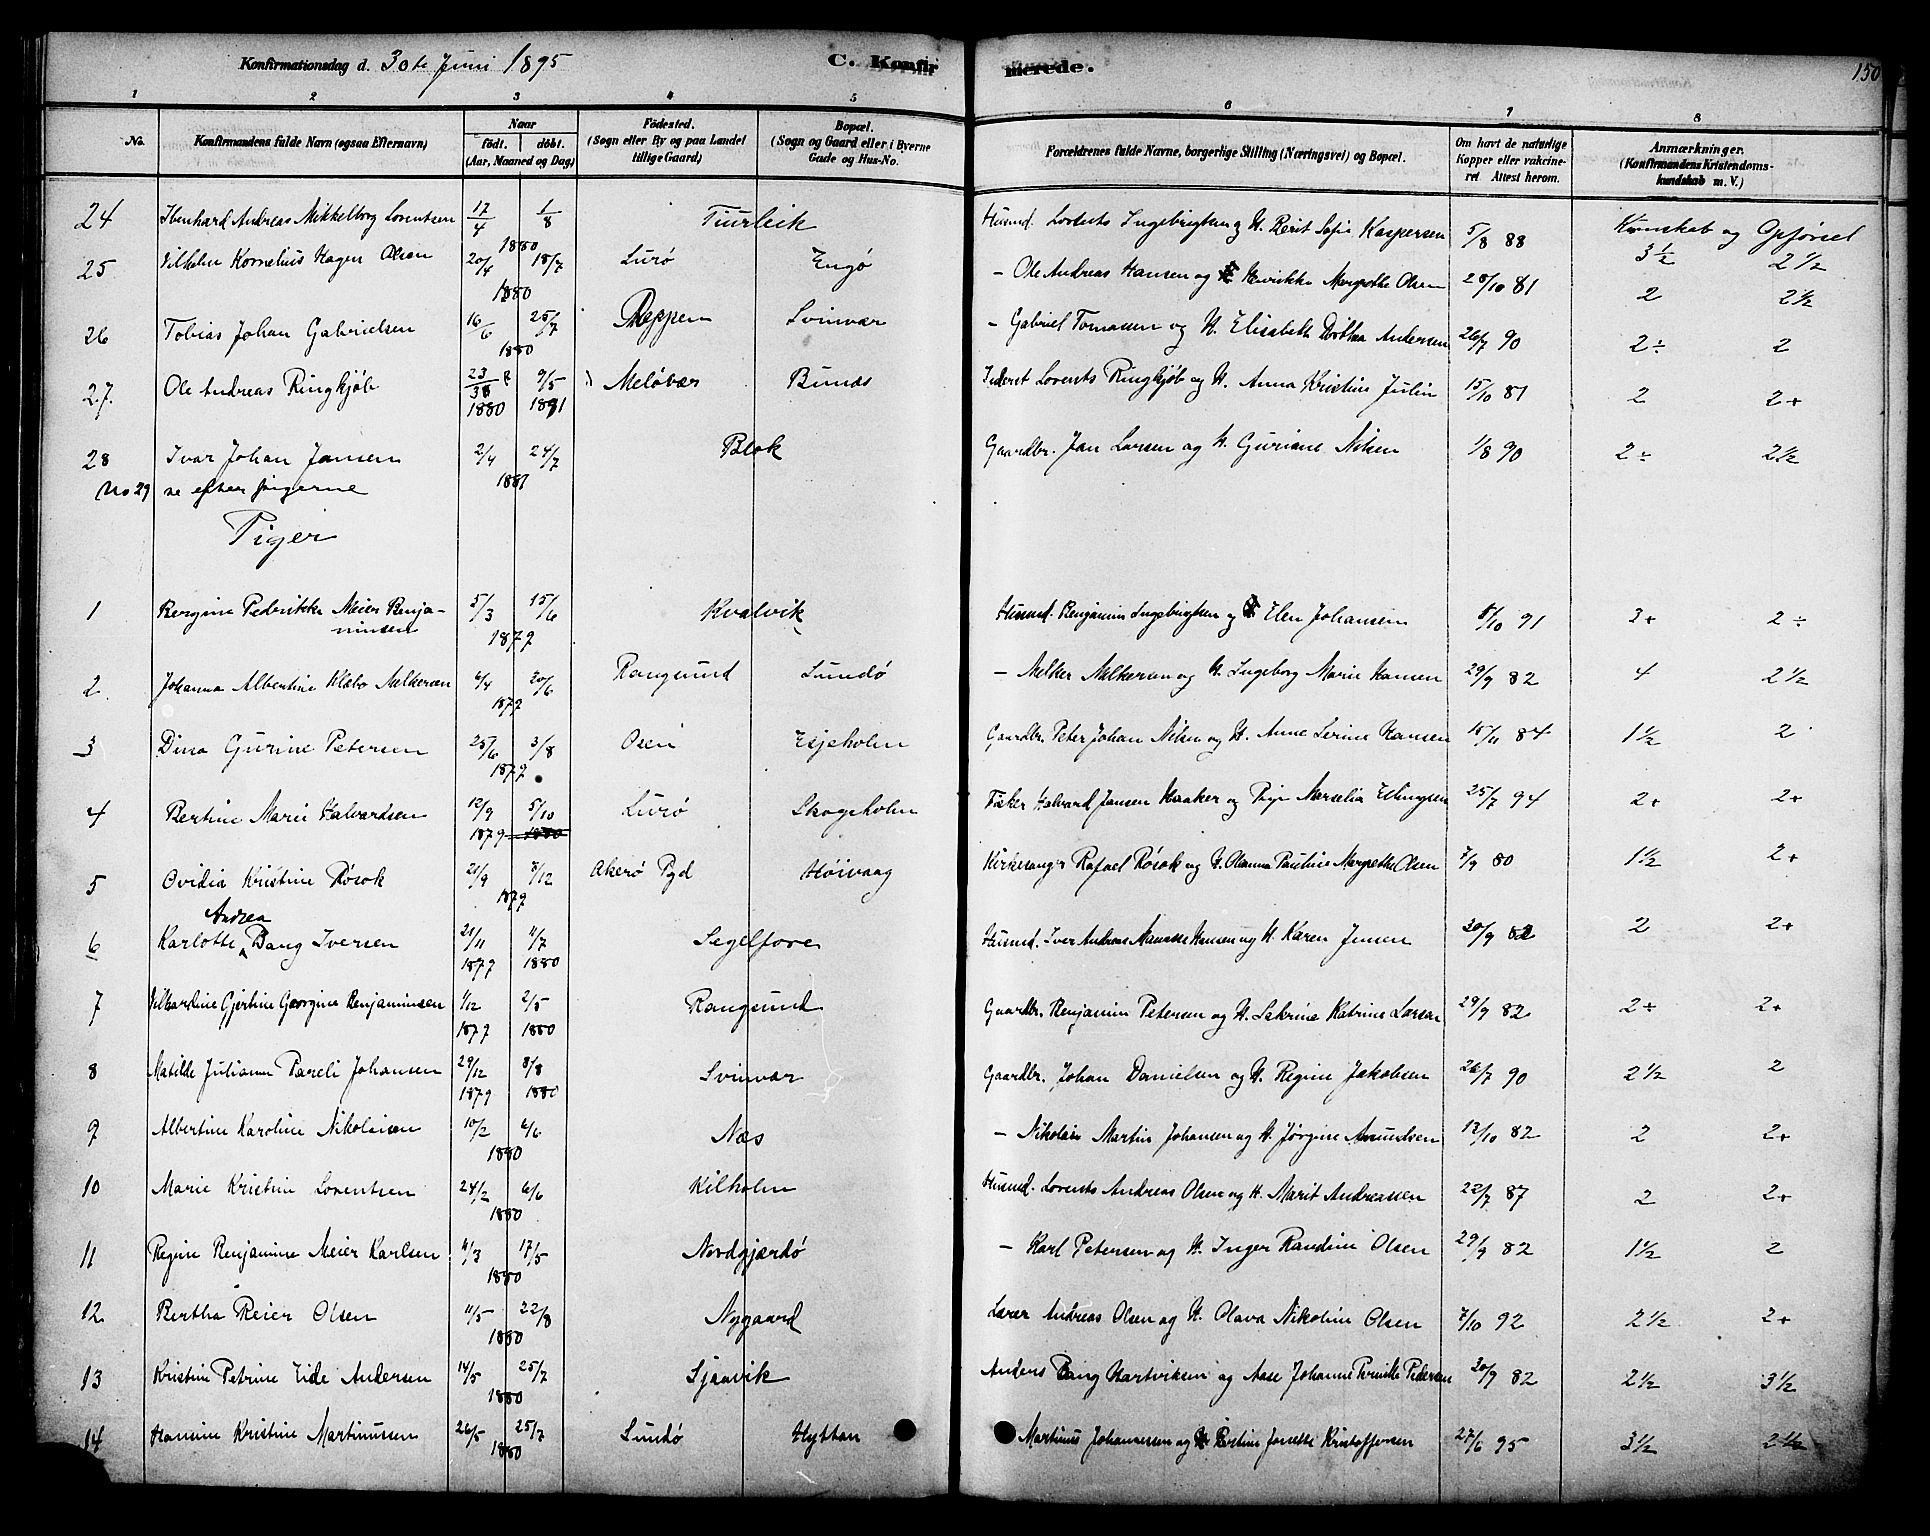 Konfirmationsdag d. 30te Juni 1895 C. Konfirmerede. 150
1 2 3 4 5 6 7 8
No. Konfirmandens fulde Navn (ogsaa Efternavn) Naar født. døbt. (Aar, Maaned og Dag) Fødested. (Sogn eller By og paa Landet tillige Gaard) Bopæl. (Sogn og Gaard eller i Byerne Gade og Hus-No. Forældrenes fulde Navne, borgerlige Stilling (Næringsvei) og Bopæl. Om havt de naturlige Kopper eller vakcineret Attest herom. Anmærkninger. (Konfirmandens Kristendomskundskab m. V.)
Kunskab og Opførsel
24 Ibenhard Andreas Mikkelborg Lorentsen 17/4 1/8 1880 Husmd. Lorents Ingebrigtsen og H. Berit Sofie Kaspersen 5/8 88 3½ 2½
25 Vilhelm Kornelius Hagen Olsen 20/4 18/7 1880 Lurø Engø – Ole Andreas Hansen og H. Henrikke Margrethe Olsen 28/10 81 2 2½
26 Tobias Johan Gabrielsen 16/6 25/7 1880 Reppen Svinvær – Gabriel Tomassen og H. Elisabeth Dorthea Andersen 26/7 90 2÷ 2
27. Ole Andreas Ringkjøb 23/ 1880 9/5 1891 Meløvær Bunæs Inderst Lorents Ringkjøb og H. Anna Kristine Julin 15/10 81 2 2+
28 Ivar Johan Jansen 2/4 24/7 1881 Blok Gaardbr. Jan Larsen og H. Guriane Nilsen 1/8 90 2÷ 2½
No 29 se efter pigerne
Piger
1 Bergine Pedrikke Meier Benjaminsen 5/3 15/6 1879 Kvalvik Husmd. Benjamin Ingebrigtsen og Elen Johansen 8/10 91 3+ 2÷
2. Johanna Albertine Klæbo Melkersen 6/4 20/6 1879 Rangsund Lundø – Melker Melkersen og H. Ingeborg Marie Hansen 29/9 82 4 2½
3 Dina Gurine Petersen 25/6 3/8 1879 Osen Esjeholm Gaardbr. Peter Johan Nilsen og H. Anne Serine Hansen 15/11 84 1½ 2
4 Bertine Marie Halvardsen 12/9 5/10 1879 Lurø Skogsholm Fisker Halvard Jansen Haaker og Pige Marselia Ellingsen 25/7 94 2+ 2+
5 Ovidia Kristine Røsok 21/9 8/12 1879 Akerø Pgd Høivaag Kirkesanger Rafael Røsok og H. Olanna Pauline Margrethe Olsen 7/9 80 1½ 2+
Andrea
6 Karlotte Bang Iversen 21/11 1879 11/7 1880 Segelfore Husmd. Iver Andreas Hansen og H. Karen Jensen 20/9 82 2 2+
7 Vilhardine Gjertine Georgine Benjaminsen 1/12 1879 2/5 1880 Rangsund Gaardbr. Benjamin Petersen og H. Sakrine Katrine Larsen 29/9 82 2÷ 2+
8 Matilde Julianne Pareli Johansen 29/12 1879 8/8 1880 Svinvær Gaardbr. Johan Danielsen og H. Regine Jakobsen 26/7 90 2½ 2
9 Albertine Karoline Nikolaisen 10/2 6/6 1880 Næs – Nikolai Martin Johansen og H. Jørgine Amundsen 12/10 82 2 2+
10 Marie Kristine Lorentsen 24/2 6/6 1880 Kilholm Husmd. Lorents Andreas Olsen og H. Marit Andreassen 22/7 87 2 2+
11 Regine Benjamine Meier Karlsen 11/3 17/5 1880 Nordgjærdø – Karl Petersen og H. Inger Randine Olsen 29/9 82 1½ 2
12 Bertha Reier Olsen 11/5 22/8 1880 Nygaard Lærer Andreas Olsen og H. Olava Nikoline Olsen 7/10 92 2½ 2+
13 Kristine Petrine Eide Andersen 14/5 25/7 1880 Sjaavik Anders Bang Hartviksen og Aase Johanne Pernille Pedersen 20/9 82 2½ 3½
14 Hansine Kristine Martinussen 26/5 25/7 1880 Lundø Hyttan Martinus Johannessen og H. Bertine Josette Kristoffersen 27/6 95 3½ 2½